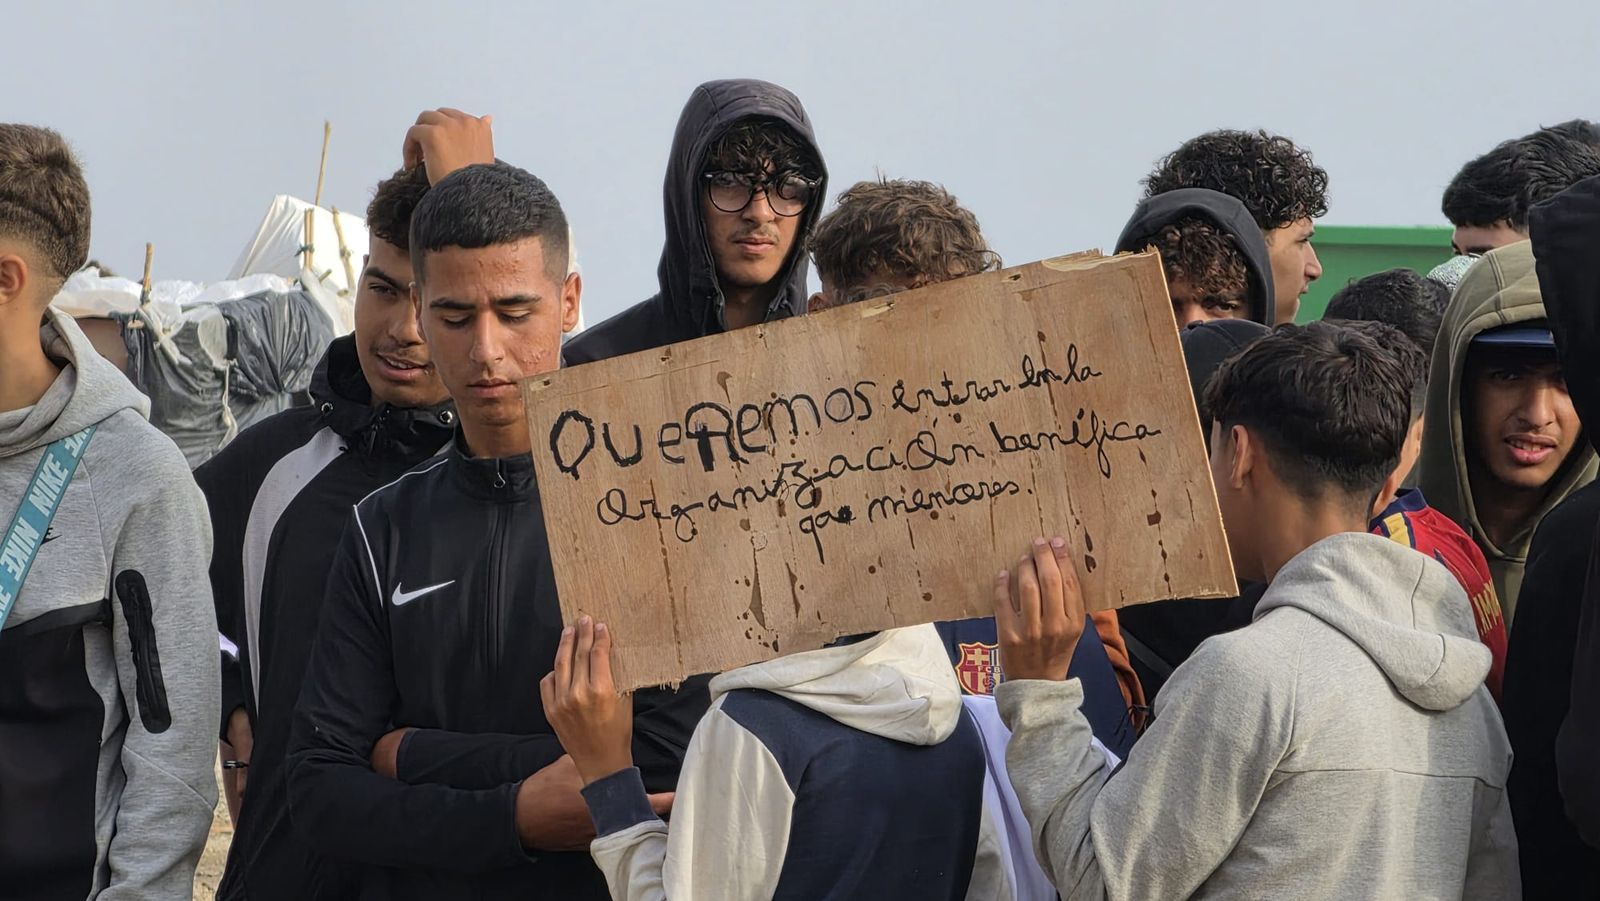 Queremos entrar en la
organización benífica
que menores.
NIKE
NIKE
FCB